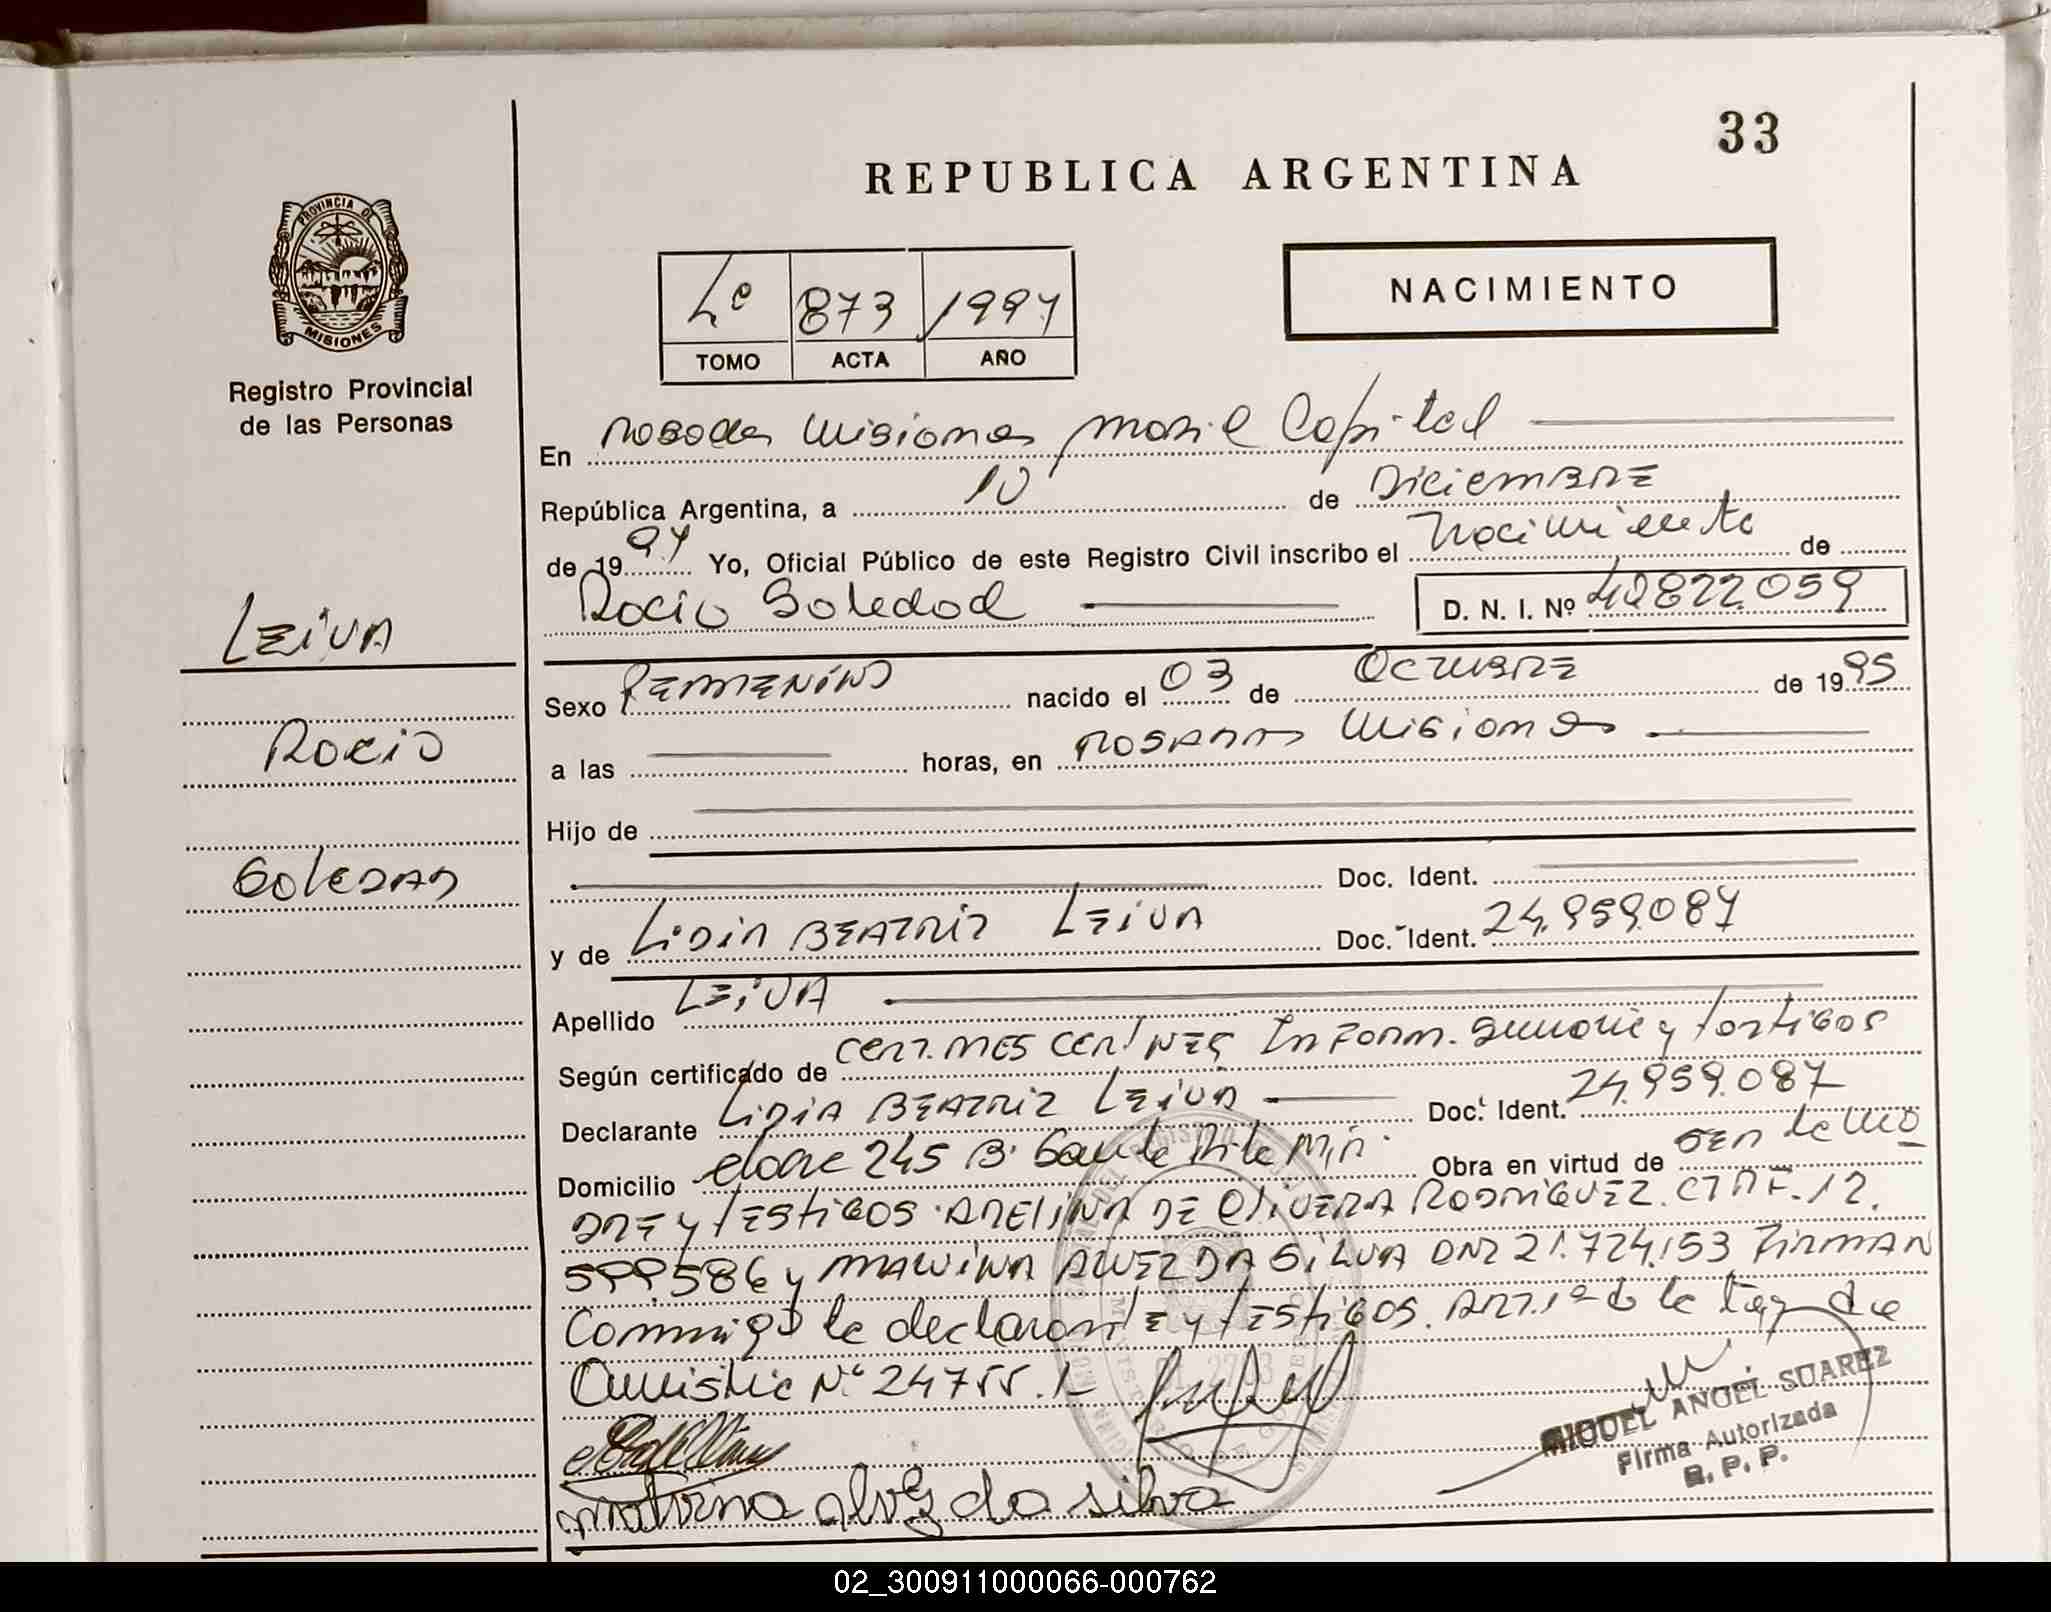 33
REPUBLICA ARGENTINA
PROVINCIA DE
MISIONES
Registro Provincial
de las Personas
873 1997
TOMO ACTA AÑO
NACIMIENTO
En Posadas Misiones Movil Capital
República Argentina, a 10 de Diciembre
de 1997 Yo, Oficial Público de este Registro Civil inscribo el Nacimiento de
Rocio Soledad D. N. I. Nº 40822.059
LEIVA
Sexo FEMMENINO nacido el 03 de OCTUBRE de 1995
ROCIO
a las horas, en POSADAS Misiones
Hijo de
SOLEDAD
Doc. Ident.
y de LIDIA BEATRIZ LEIVA Doc. Ident. 24.959.087
Apellido LEIVA
Según certificado de CERT. MES CERT NEG INFORM. y testigos
Declarante LIDIA BEATRIZ LEIVA Doc. Ident. 24.959.087
Domicilio 245 B. Obra en virtud de SER la MA
DRE y TESTIGOS DE OLIVERA RODRIGUEZ. 12.
599.586 y MALVINA ALVEZ DA SILVA DNI 21.724.153 FIRMAN
Conmigo la declarante y TESTIGOS. ART. 1º de la Ley de
Amnistia Nº 24755.
MIGUEL ANGEL SUAREZ
Firma Autorizada
R. P. P.
malvina alvez da silva
02_300911000066-000762